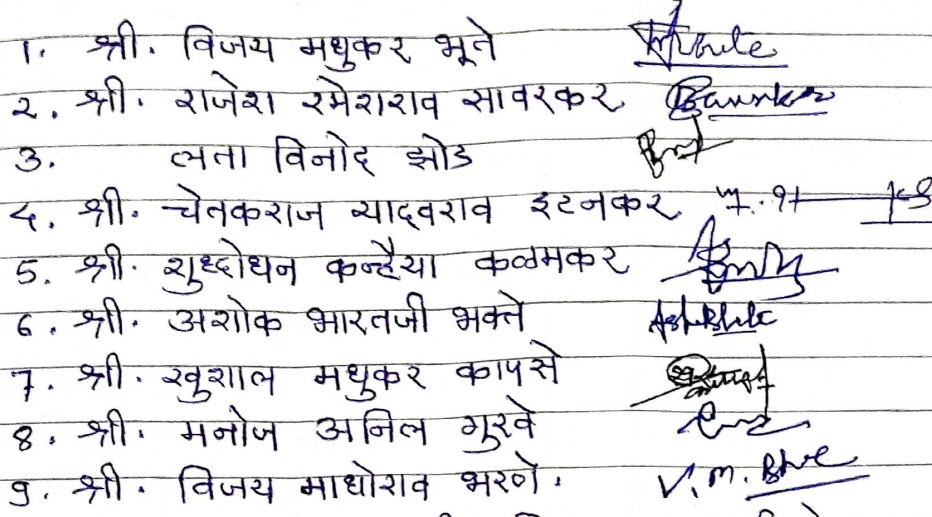 1. श्री. विजय मधुकर भूते
२. श्री. राजेश रमेशराव सावरकर
3. लता विनोद झोड
४. श्री. चेतकराज यादवराव इटनकर
5. श्री. शुध्दोधन कन्हैया कळमकर
6. श्री. अशोक भारतजी भक्ते
7. श्री. खुशाल मधुकर कापसे
8. श्री. मनोज अनिल गुरवे
9. श्री. विजय माधोराव भरणे. V.M. Bhve